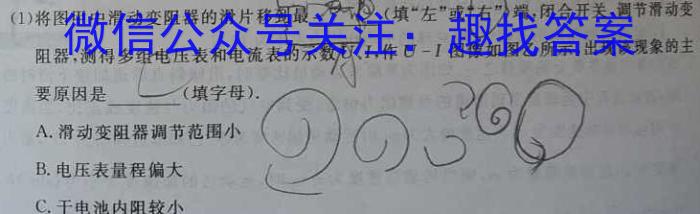 (1)将图甲中滑动变阻器的滑片移到最 (填“左”或“右”)端,闭合开关,调节滑动变
微信公众号关注:趣找答案
阻器,测得多组电压表和电流表的示数U、I,作U-I图像如图乙所示,出现该现象的主
要原因是 (填字母).
A.滑动变阻器调节范围小
B.电压表量程偏大
C.干电池内阻较小